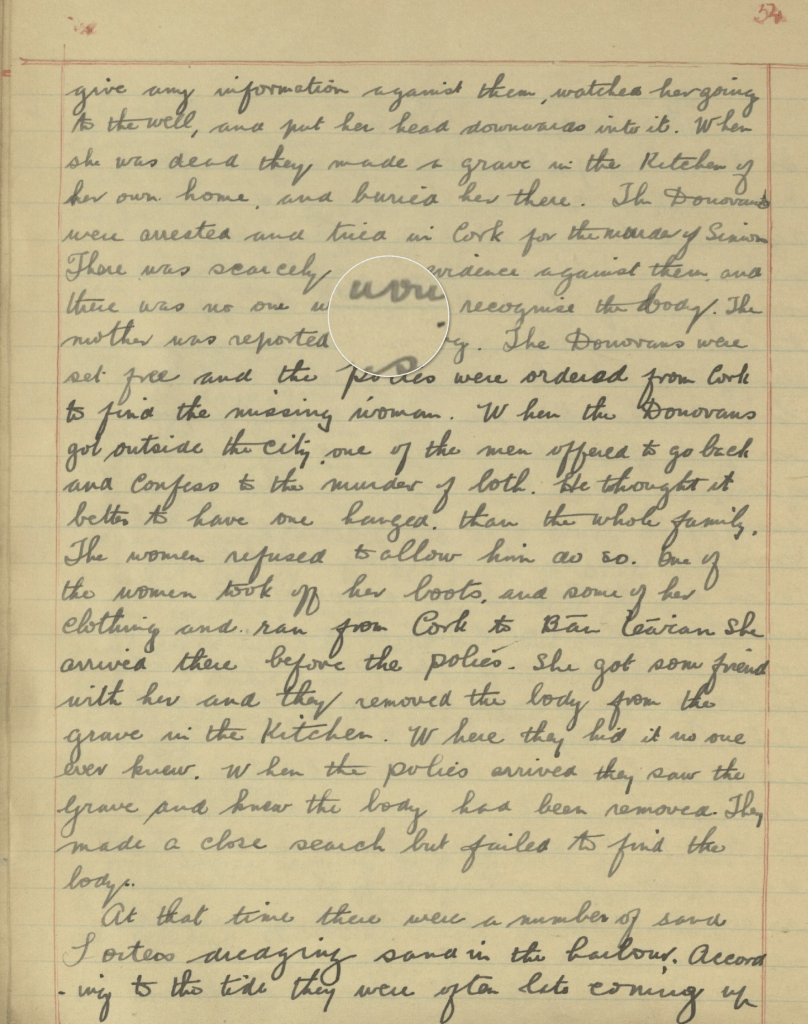 54
give any information against them, watched her going
to the well, and put her head downwards into it. When
she was dead they made a grave in the Kitchen of
her own home, and buried her there. The Donovans
were arrested and tried in Cork for the murder of
There was scarcely evidence against them, and
there was no one recognise the body. The
mother was reported The Donovans were
set free and the polies were ordered from Cork
to find the missing woman. When the Donovans
got outside the city, one of the men offered to go back
and confess to the murder of both. He thought it
better to have one hanged, than the whole family.
The women refused to allow him do so. One of
the women took off her boots, and some of her
clothing and ran from Cork to Bán She
arrived there before the polies. She got som friend
with her and they removed the body from the
grave in the Kitchen. Where they hid it no one
ever knew. When the polies arrived they saw the
grave and knew the body had been removed. They
made a close search but failed to find the
body.
At that time there were a number of sand
dredging sand in the harbour. Accord
-ing to the tide they were often late coming up